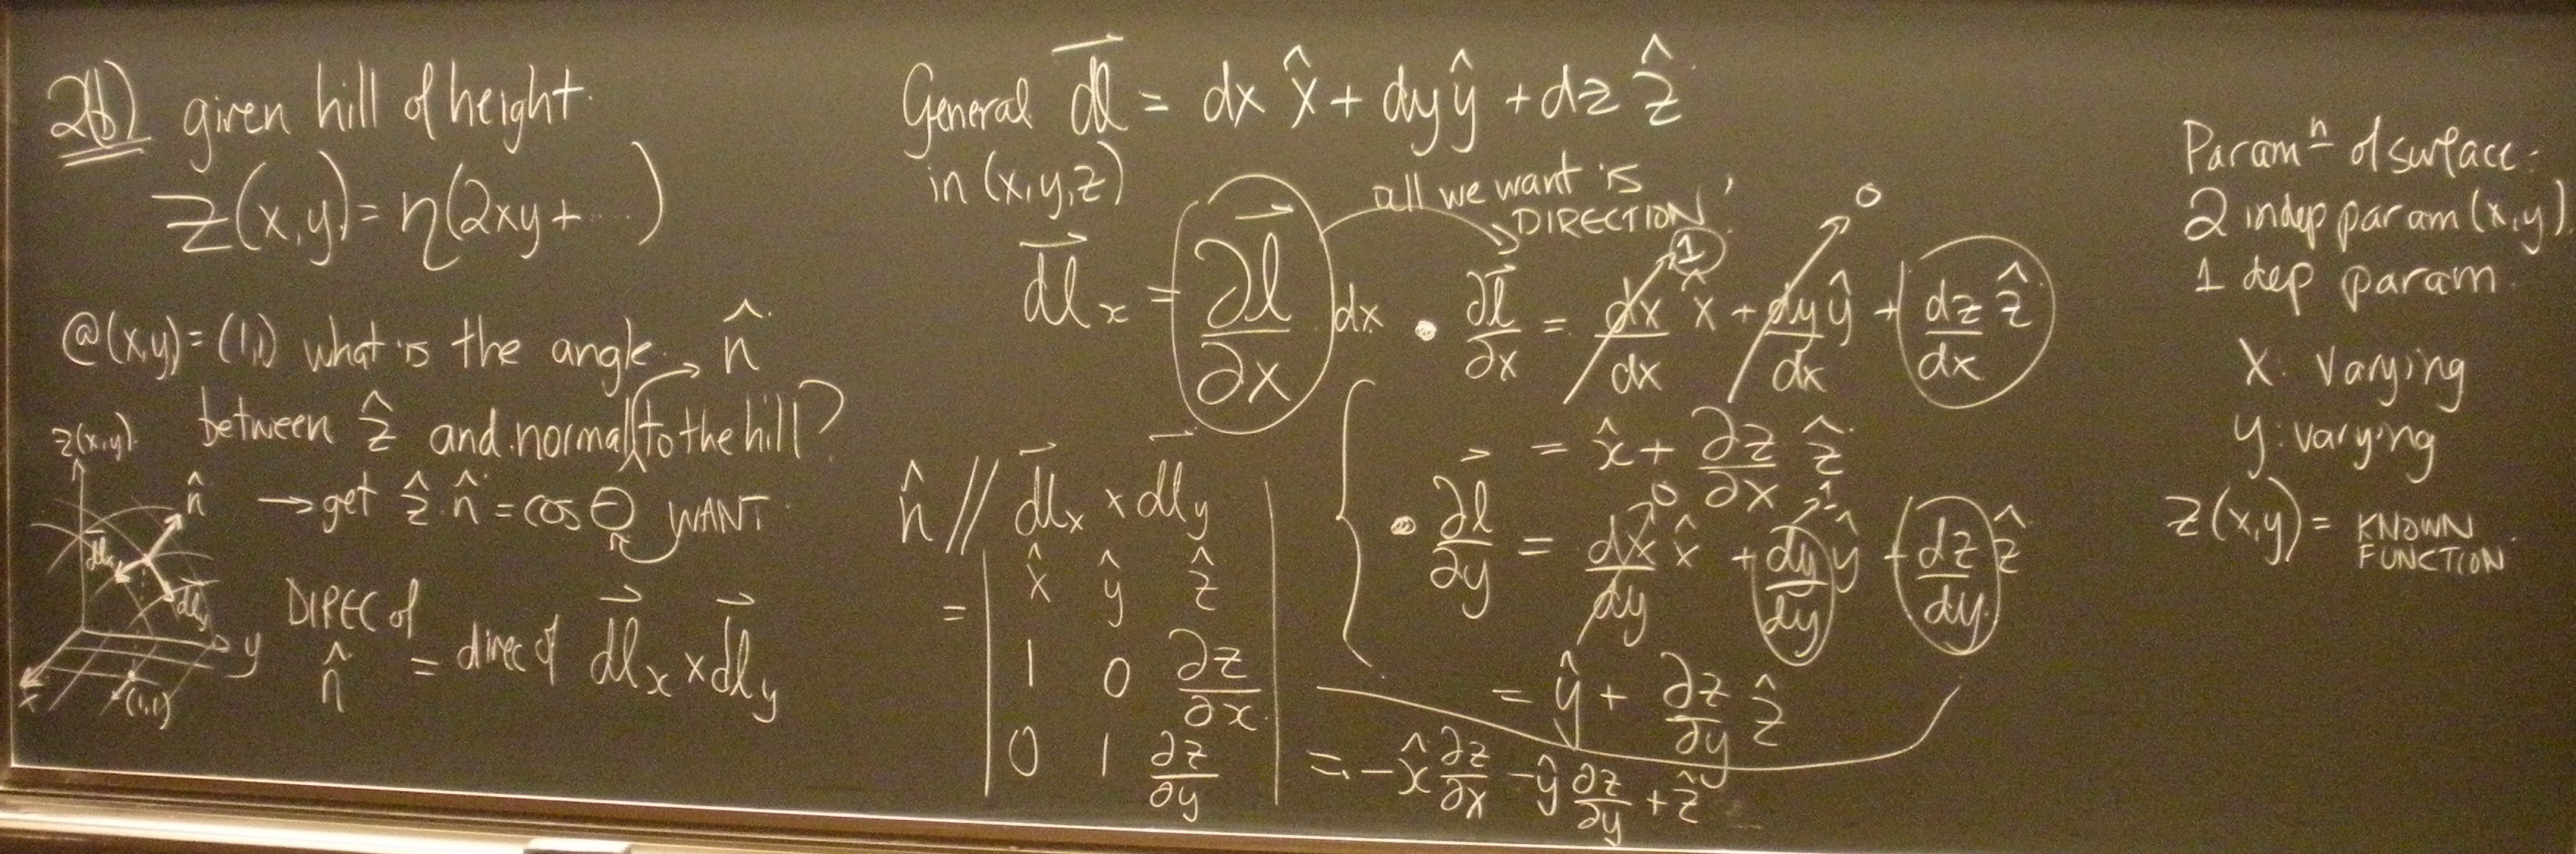 2(b) given hill of height
z(x,y) = η(2xy + ...)
@(x,y) = (1,1) what is the angle → n̂
between ẑ and normal to the hill?
→ get ẑ·n̂ = cos θ WANT
z(x,y)
n̂
dl⃗x
dl⃗y
y
x
(1,1)
DIREC of n̂ = direc of dl⃗x × dl⃗y
General dl⃗ = dx x̂ + dy ŷ + dz ẑ
in (x,y,z)
all we want is
DIRECTION
dl⃗x = ∂l⃗/∂x dx • ∂l⃗/∂x = dx/dx x̂ + dy/dx ŷ + dz/dx ẑ
1
0
= x̂ + ∂z/∂x ẑ
• ∂l⃗/∂y = dx/dy x̂ + dy/dy ŷ + dz/dy ẑ
0
1
= ŷ + ∂z/∂y ẑ
n̂ // dl⃗x × dl⃗y
= | x̂ ŷ ẑ |
1 0 ∂z/∂x
0 1 ∂z/∂y
= -x̂ ∂z/∂x - ŷ ∂z/∂y + ẑ
Paramⁿ of surface:
2 indep param (x,y)
1 dep param
x: varying
y: varying
z(x,y) = KNOWN
FUNCTION